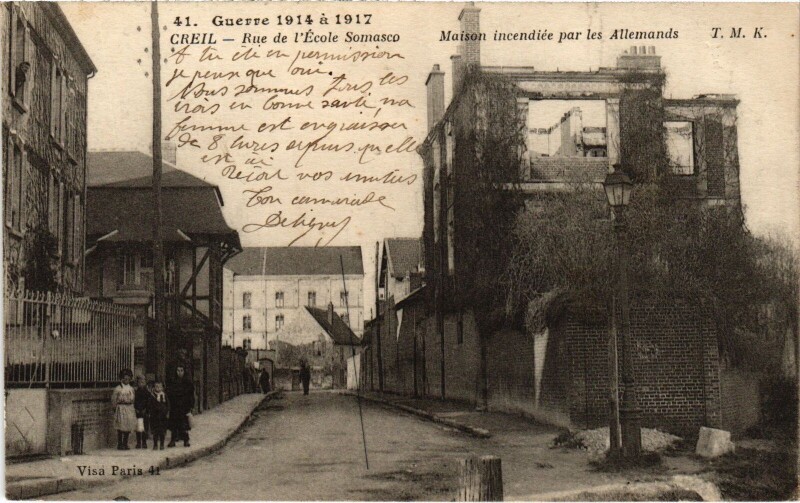 41. Guerre 1914 à 1917
CREIL — Rue de l'École Somasco
Maison incendiée par les Allemands
T. M. K.
A tu été en permission
je pense que oui.
Nous sommes tous les
trois en bonne santé, ma
femme est engraisser
de 8 livres depuis qu'elle
est ici
Reçoit vos amitiés
Ton camarade
Visa Paris 41